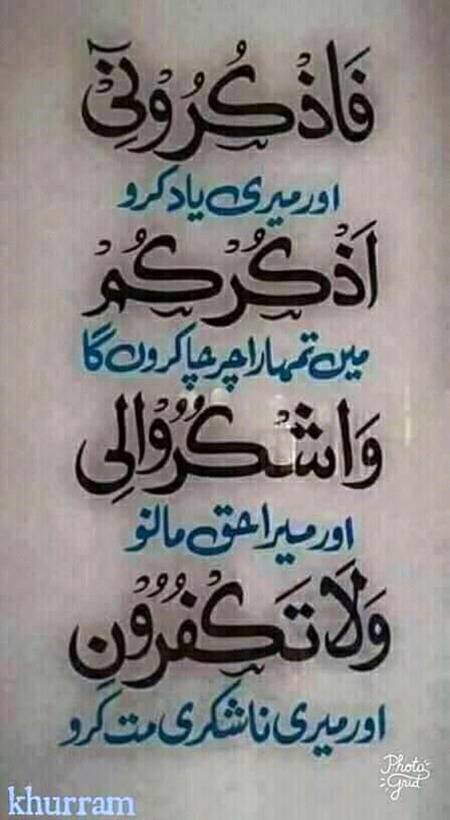 فَاذْكُرُوْنِيْٓ
اور میری یاد کرو
اَذْكُرْكُمْ
میں تمہارا چرچا کروں گا
وَاشْكُرُوْا لِی
اور میرا حق مانو
وَلَا تَكْفُرُوْنِ
اور میری ناشکری مت کرو
Photo
Grid
khurram